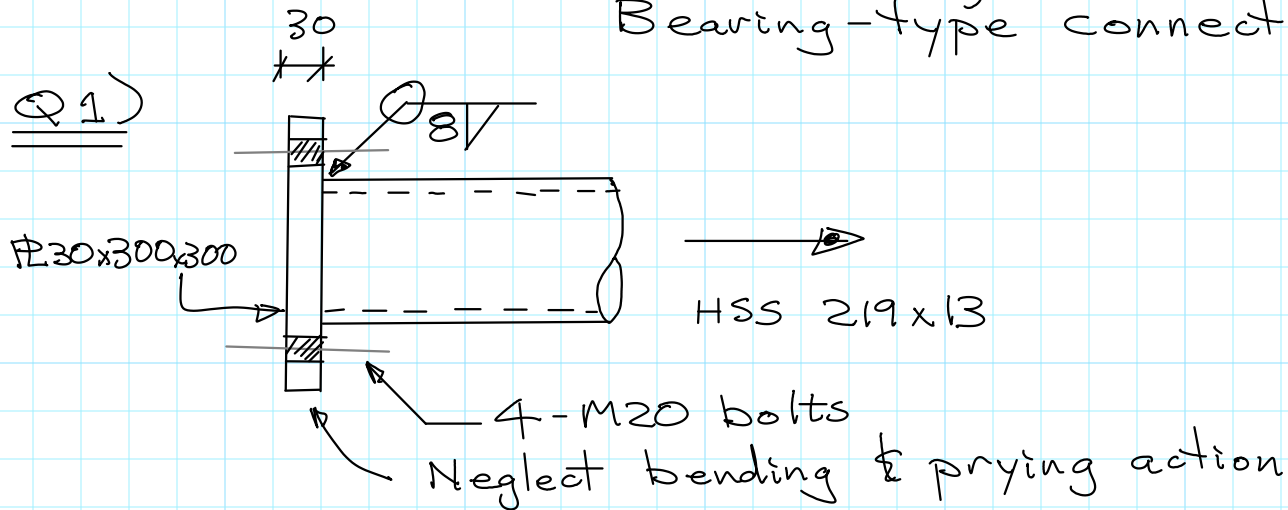 Bearing-type connect
30
Q1)
8
PL30x300x300
HSS 219x13
4-M20 bolts
Neglect bending & prying action